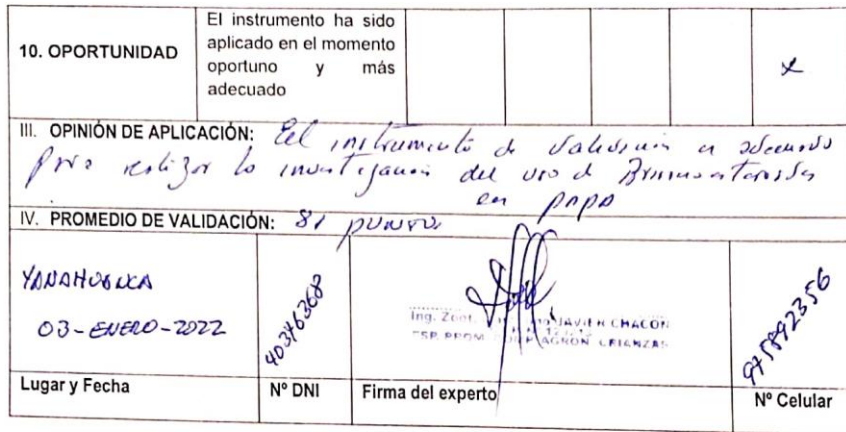 10. OPORTUNIDAD
El instrumento ha sido
aplicado en el momento
oportuno y más
adecuado
x
III. OPINIÓN DE APLICACIÓN: El instrumento de validación es adecuado
para realizar la investigación del uso de
en papa
IV. PROMEDIO DE VALIDACIÓN: 81 puntos
YANAHUANCA
03-ENERO-2022
40346368
Ing. Zoot. JAVIER CHACON
ESP. PROM. AGRON. CRIANZAS
Lugar y Fecha
Nº DNI
Firma del experto
Nº Celular